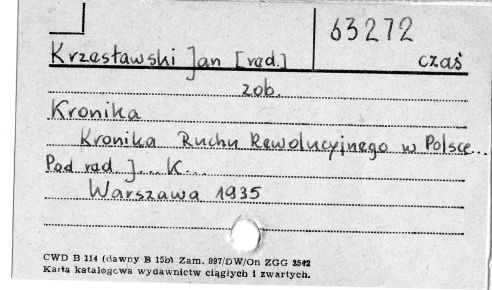 63272
Krzesławski Jan [red.] czaś
zob.
Kronika
Kronika Ruchu Rewolucyjnego w Polsce...
Pod red J.... K...
Warszawa 1935
CWD B 114 (dawny B 15b) Zam. 897/DW/On ZGG 2542
Karta katalogowa wydawnictw ciągłych i zwartych.